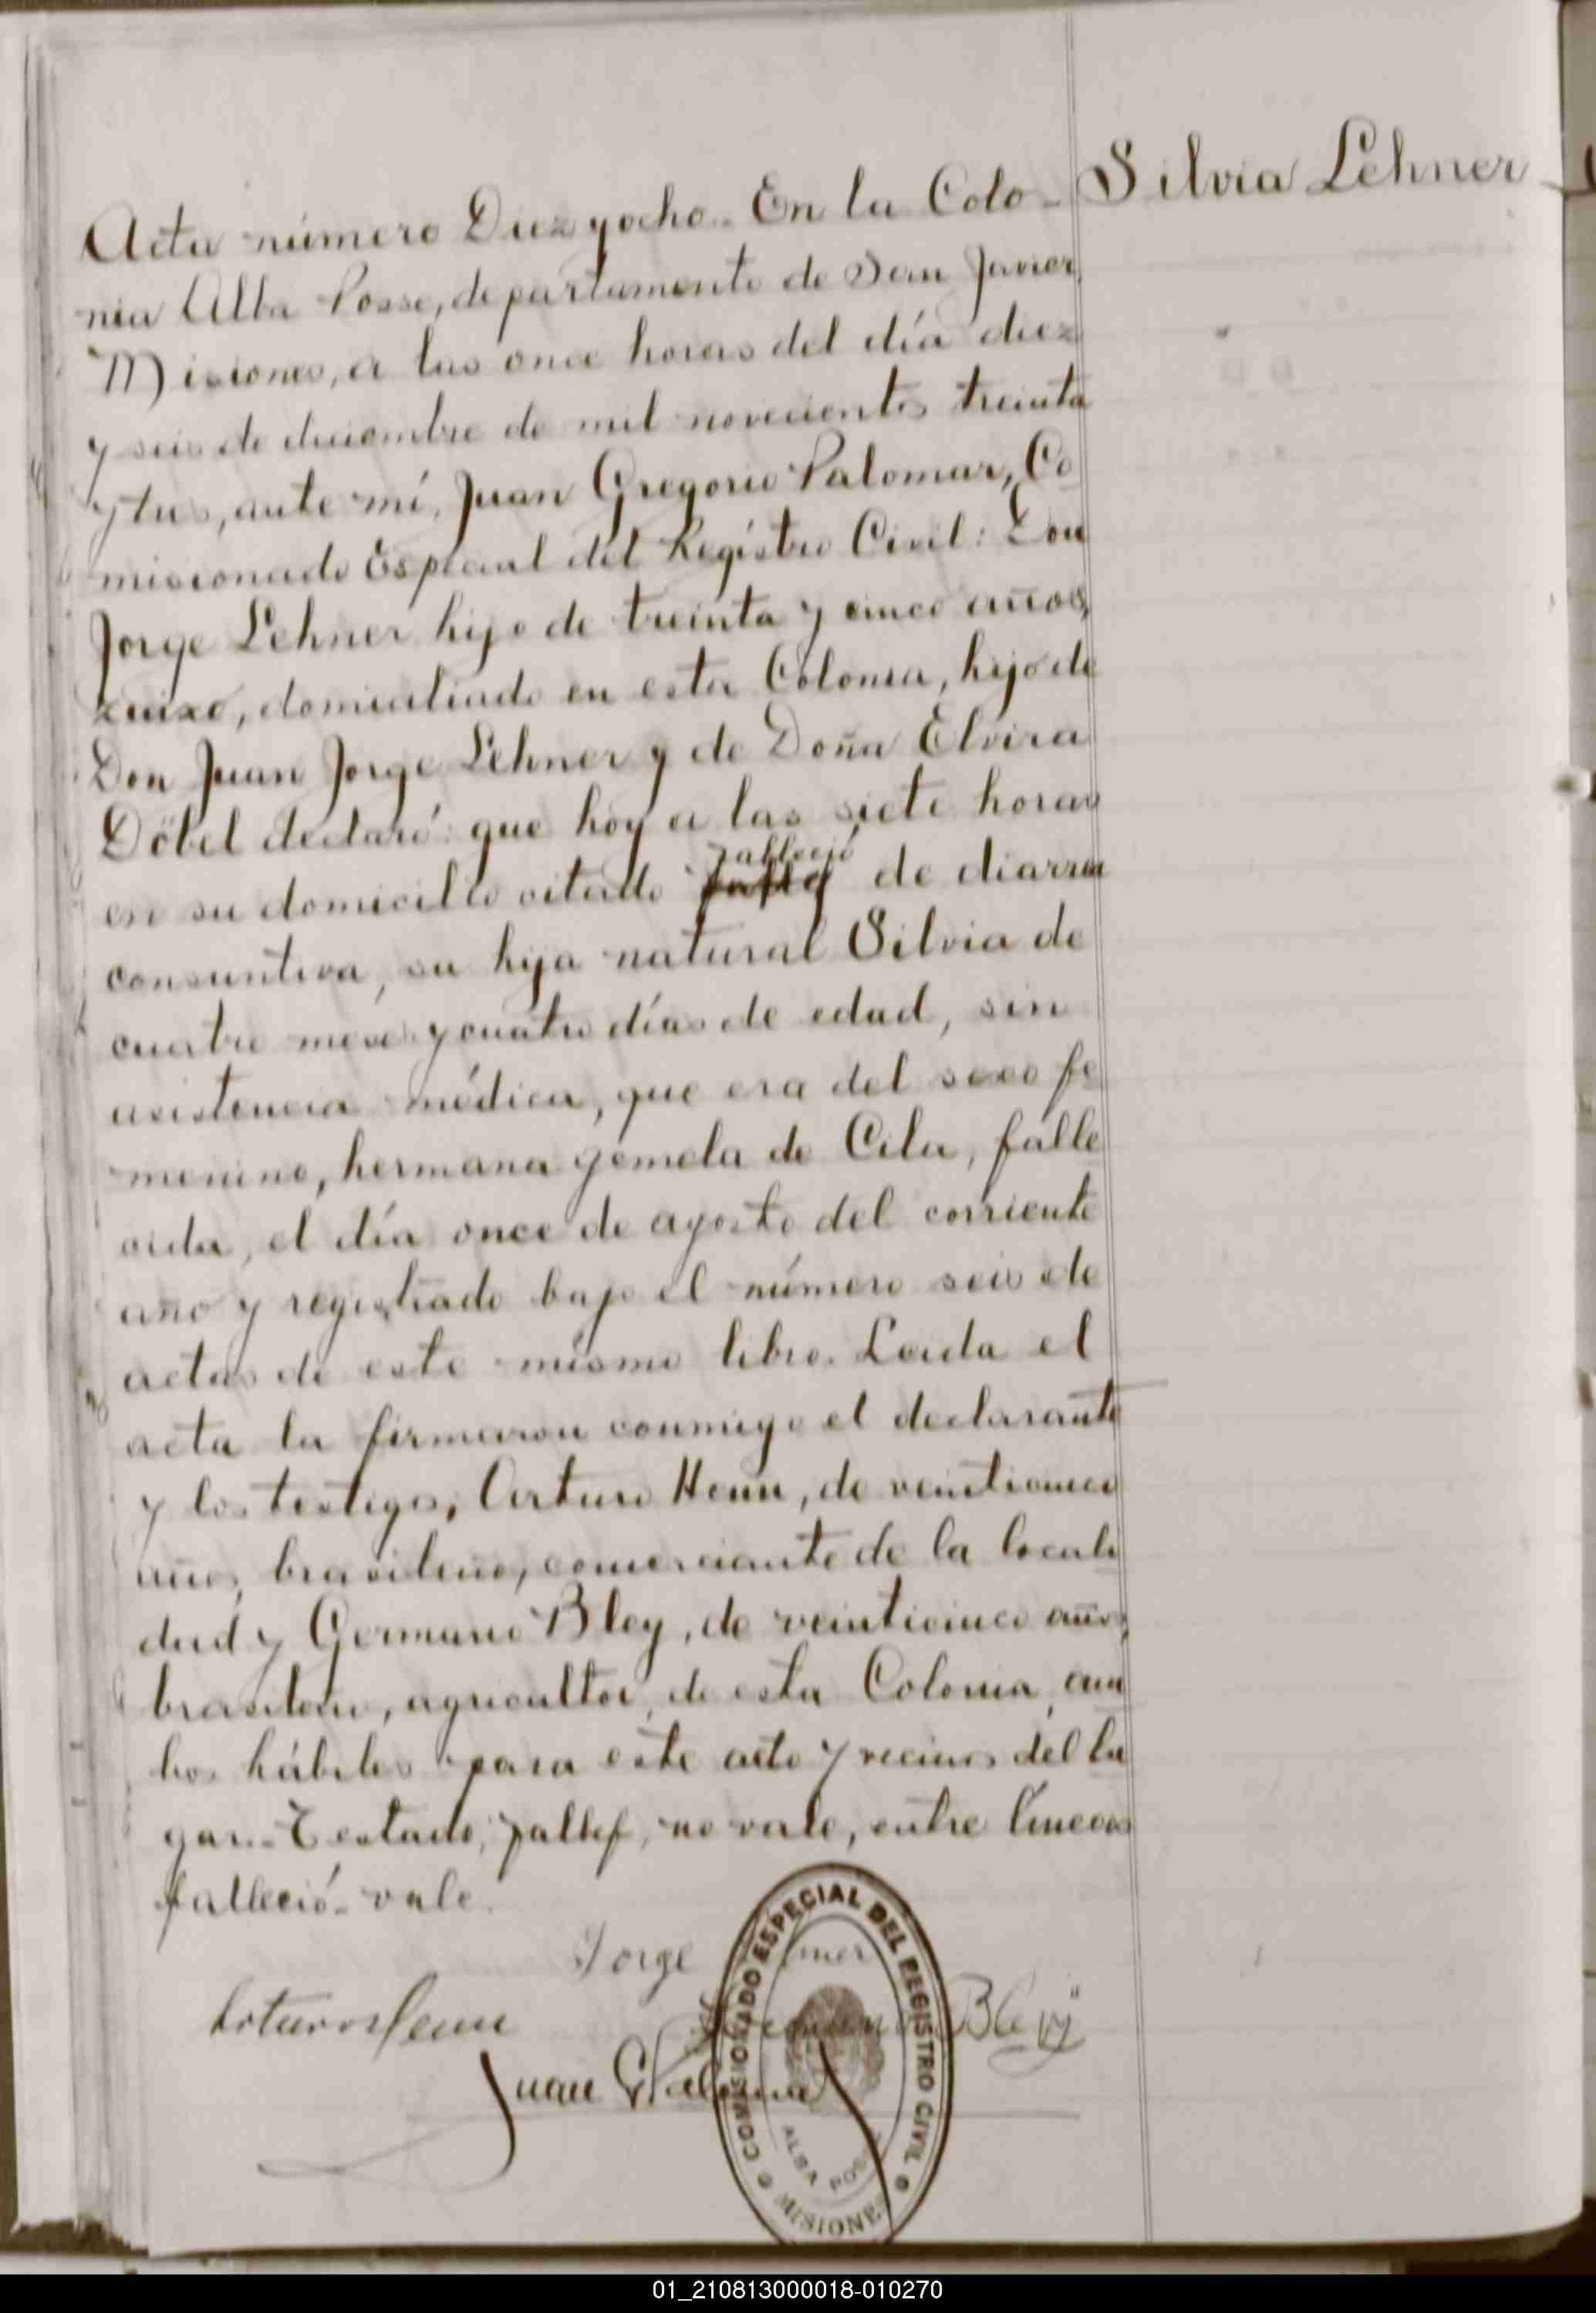 Silvia Lehner
Acta número Diez y ocho. En la Colo-
nia Alba Posse, departamento de San Javier,
Misiones, a las once horas del día diez
y seis de diciembre de mil novecientos treinta
y tres, ante mí, Juan Gregorio Palomar, Co
misionado Especial del Registro Civil: Don
Jorge Lehner hijo de treinta y cinco años,
zuixo, domiciliado en esta Colonia, hijo de
Don Juan Jorge Lehner y de Doña Elvira
Döbel declaró: que hoy a las siete horas
falleció
en su domicilio citado de diarrea
consuntiva, su hija natural Silvia de
cuatro meses y cuatro días de edad, sin
asistencia médica, que era del sexo fe
menino, hermana gemela de Cila, falle
cida, el día once de agosto del corriente
año y registrado bajo el número seis de
actas de este mismo libro. Leida el
acta la firmaron conmigo el declarante
y los testigos, Arturo Henn, de veinticinco
años, brasileño, comerciante de la locali
dad y Germano Bley, de veinticinco años,
brasileño, agricultor, de esta Colonia, am
bos hábiles para este acto y vecinos del lu
gar.- Testado, no vale, entre líneas
falleció- vale.
Jorge
Arturo Henn
Bley
Juan G Palomar
COMISIONADO ESPECIAL DEL REGISTRO CIVIL
ALBA POSSE
MISIONES
01_210813000018-010270